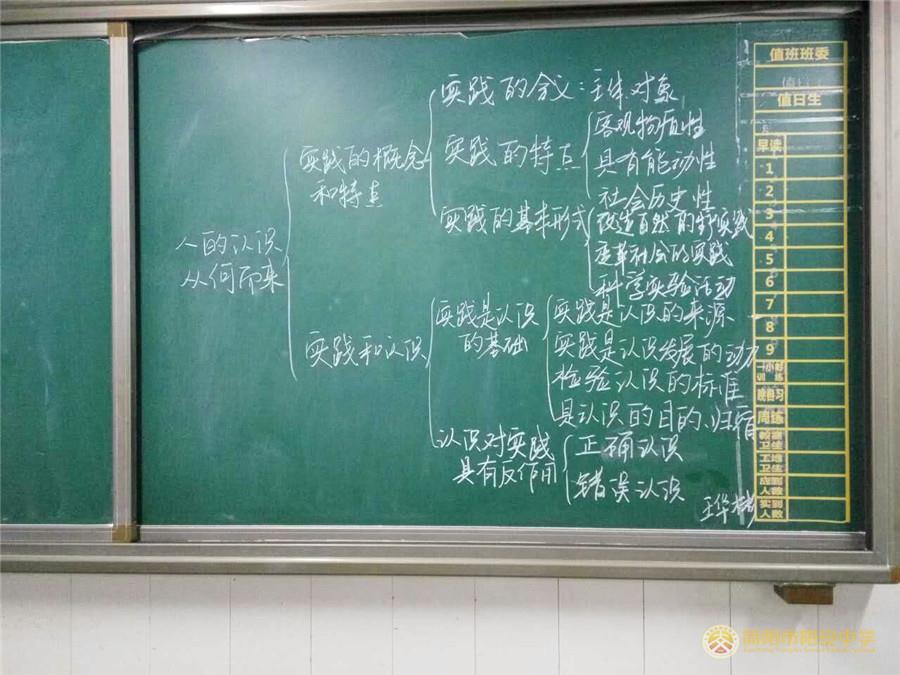 人的认识
从何而来
实践的概念
和特点
实践的含义：主体对象
实践的特点
客观物质性
具有能动性
社会历史性
实践的基本形式
改造自然的实践
变革社会的实践
科学实验活动
实践和认识
实践是认识
的基础
实践是认识的来源
实践是认识发展的动力
检验认识的标准
是认识的目的、归宿
认识对实践
具有反作用
正确认识
错误认识
王华
值班班委
值日生
早读
1
2
3
4
5
6
7
8
9
一小时
训练
晚自习
周练
卫生
工地
卫生
应到
人数
实到
人数
简阳市阳安中学